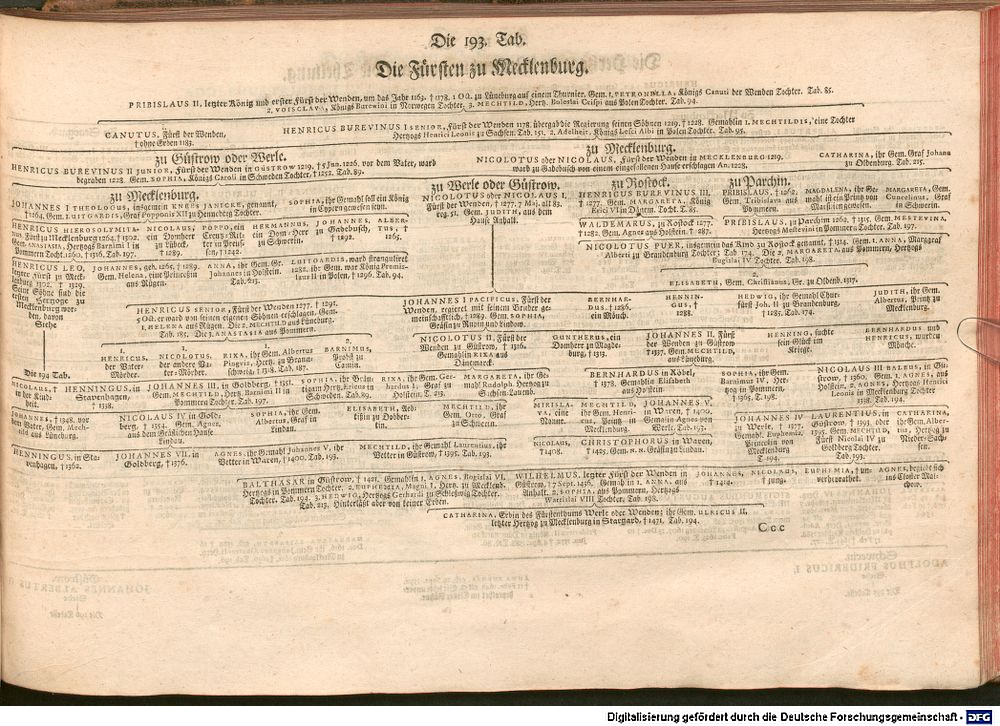 Die 193. Tab.
Die Fürsten zu Mecklenburg.
PRIBISLAUS II, letzter König und erster Fürst der Wenden, um das Jahr 1163. † 1178. 1 Oct. zu Lüneburg auf einem Thurnier. Gem. 1. PETRONELLA, Königs Canuti der Wenden Tochter. Tab. 85.
2. VOISCLAVA, Königs Burewini in Norwegen Tochter. 3. MECHTILD, Hertz. Boleslai Crispi aus Polen Tochter. Tab. 94.
CANUTUS, Fürst der Wenden,
† ohne Erben 1183.
HENRICUS BUREVINUS I SENIOR, Fürst der Wenden 1178. übergab die Regierung seinen Söhnen 1219. † 1228. Gemahlin 1. MECHTILDIS, eine Tochter
Hertzogs Henrici Leonis zu Sachsen. Tab. 151. 2. Adelheit, Königs Lesci Albi in Polen Tochter. Tab. 95.
zu Güstrow oder Werle.
HENRICUS BUREVINUS II JUNIOR, Fürst der Wenden in GUSTROW 1219. † 5 Jun. 1226. vor dem Vater, ward
begraben 1228. Gem. SOPHIA, Königs Caroli in Schweden Tochter, † 1252. Tab. 89.
zu Mecklenburg.
NICOLOTUS oder NICOLAUS, Fürst der Wenden in MECKLENBURG 1219.
ward zu Gadebusch von einem eingefallenen Hause erschlagen An. 1228.
CATHARINA, ihr Gem. Graf Johann
zu Oldenburg. Tab. 215.
zu Mecklenburg.
JOHANNES I THEOLOGUS, insgemein KNEES JANICKE, genannt,
† 1264. Gem. LUITGARDIS, Graf Popponis XII zu Henneberg Tochter.
SOPHIA, ihr Gemahl soll ein König
in Cypern gewesen seyn.
zu Werle oder Güstrow.
NICOLOTUS oder NICOLAUS I,
Fürst der Wenden, † 1277. 7 Maj. alt 83.
reg. 51. Gem. JUDITH, aus dem
Hause Anhalt.
zu Rostock.
HENRICUS BUREVINUS III,
† 1277. Gem. MARGARETA, König
Erici VI zu Dänem. Tocht. T. 85.
zu Parchim.
PRIBISLAUS, † 1262.
Gem. Tribislava aus
Pommern.
MAGDALENA, ihr Gemahl
ist ein Printz von
Marschen gewesen.
MARGARETA, Gem.
Guncelinus, Graf
in Schwerin.
HENRICUS HIEROSOLYMITANUS,
Fürst zu Mecklenburg 1264. † 1302.
Gem. ANASTASIA, Hertzogs Barnimi I in
Pommern Tocht. 1260. † 1316. Tab. 197.
NICOLAUS,
ein Domherr
zu Lübeck.
† 1289.
POPPO, ein
Creutz-Ritter
in Preussen,
† 1242.
HERMANNUS,
ein Dom-Herr
zu Schwerin.
JOHANNES,
zu Gadebusch,
† 1292.
ALBERTUS,
†
1265.
WALDEMARUS, zu Rostock 1277.
† 1282. Gem. Agnes aus Holstein. † 1287.
PRIBISLAUS, zu Parchim 1262. † 1315. Gem. MESTEVINA,
Hertzogs Mestevini in Pommern Tochter. Tab. 197.
NICOLAUS PUER, insgemein das Kind zu Rostock genannt, † 1314. Gem. 1. ANNA, Marggraf
Alberti zu Brandenburg Tochter; Tab. 174. Die 2. MARGARETA, aus Pommern, Hertzogs
Bugislai IV. Tochter. Tab. 198.
ELISABETH, Gem. Christianus, Gr. zu Oldenb. 1317.
HENRICUS LEO,
letzter Fürst zu Mecklenburg
1302. † 1329.
Seine Söhne sind die
ersten Hertzoge zu
Mecklenburg worden,
davon
Siehe
Die 194 Tab.
JOHANNES, geb. 1265. † 1289.
Gem. Helena, eine Princeßin
aus Rügen.
ANNA, ihr Ge. Graf
Johannes in Holstein.
Tab. 213.
LUITGARDIS, ward stranguliret
1282. ihr Gem. war König Premislaus
II in Polen, † 1296. Tab. 94.
HENRICUS SENIOR, Fürst der Wenden 1277. † 1291.
5 Oct. er ward von seinen eigenen Söhnen erschlagen. Gem.
1. HELENA aus Rügen. Die 2. MECHTILD aus Lüneburg.
Tab. 185. Die 3. ANASTASIA aus Pommern.
JOHANNES I PACIFICUS, Fürst der
Wenden, regieret mit seinem Bruder gemeinschafftlich,
† 1289. Gem. SOPHIA,
Gräfin zu Ruppin und Lindow.
BERNHARDUS,
† 1286.
ein Mönch.
HENNINGUS,
†
1288.
HEDWIG, ihr Gemahl Churfürst
Joh. II zu Brandenburg.
† 1285. Tab. 174.
JUDITH, ihr Gem.
Albertus, Printz zu
Mecklenburg.
1.
HENRICUS,
der Vater-Mörder.
1.
NICOLOTUS,
der andere Vater-Mörder.
1.
RIXA, ihr Gem. Albertus
Pinguis, Hertz. zu Braunschweig,
† 1318. Tab. 187.
2.
BARNIMUS,
Probst zu
Camin.
NICOLOTUS II, Fürst der
Wenden zu Güstrow, † 1316.
Gemahlin RIXA aus
Dännemarck.
GUNTHERUS, ein
Domherr zu Magdeburg,
† 1313.
JOHANNES II, Fürst
der Wenden zu Güstrow
† 1337. Gem. MECHTILD,
aus Lüneburg.
HENNING, suchte
sein Glück im
Kriege.
BERNHARDUS und
HENRICUS, wurden
Mönche.
NICOLAUS, †
in der Kindheit.
HENNINGUS, in
Stavenhagen,
† 1338.
JOHANNES III, in Goldberg, † 1351.
Gem. MECHTILD, Hertz. Barnimi II in
Pommern Tochter. Tab. 197.
SOPHIA, ihr Bräutigam
Hertz. Ericus in
Schweden. Tab. 89.
RIXA, ihr Gem. Gerhardus
I, Graf zu
Holstein, T. 213.
MARGARETA, ihr Gemahl
Rudolph, Hertzog zu
Sachsen-Lauenb.
BERNHARDUS in Röbel,
† 1378. Gemahlin Elisabeth
aus Holstein.
SOPHIA, ihr Gem.
Barnimus IV, Hertzog
in Pommern,
† 1365. T. 198.
NICOLAUS III BALBUS, in Güstrow,
† 1360. Gem. 1. AGNES, aus
Holst. 2. AGNES, Hertzogs Henrici
Leonis in Mecklenburg Tochter
1338. Tab. 194.
JOHANNES, † 1348. vor
dem Vater, Gem. Mechtild
aus Lüneburg.
NICOLAUS IV, in Goldberg,
† 1354. Gem. Agnes,
aus dem Gräflichen Hause
Lindau.
SOPHIA, ihr Gem.
Albertus, Graf in
Lindau.
ELISABETH, Aebtißin
zu Dobbertin.
MECHTILD, ihr
Gem. Otto, Graf
zu Schwerin.
MIRISLAVA,
eine
Nonne.
MECHTILD,
ihr Gem. Henricus,
Printz in
Mecklenburg.
JOHANNES V,
in Waren, † 1400.
Gemahlin Agnes von
Werle. Tab. 193.
JOHANNES IV
zu Werle, † 1377.
Gemahl. Euphemia,
Princeßin von
Mecklenburg
T. 194.
LAURENTIUS, in
Güstrow, † 1393. oder
1400. Gem. MECHTILD,
Fürst Nicolai IV zu
Werle Tochter.
Tab. 193.
CATHARINA,
ihr Gem.
Hertzog zu
Nieder-Sachsen.
HENNINGUS, in Stavenhagen,
† 1362.
JOHANNES VII, in
Goldberg, † 1376.
AGNES, ihr Gemahl Johannes V, ihr
Vetter in Waren, † 1400. Tab. 193.
MECHTILD, ihr Gemahl Laurentius, ihr
Vetter in Güstrow, † 1395. Tab. 193.
NICOLAUS,
† 1408.
CHRISTOPHORUS in Waren,
† 1425. Gem. N. N. Gräfin zu Lindau.
BALTHASAR in Güstrow, † 1421. Gemahlin 1. AGNES, Bugislai VI,
Hertzogs in Pommern Tochter. 2. EUPHEMIA, Magni I, Hertz. zu Mecklenb.
Tochter. Tab. 194. 3. HEDWIG, Hertzogs Gerhardi zu Schleßwig Tochter.
Tab. 213. Hinterläßt aber von keiner Erben.
WILHELMUS, letzter Fürst der Wenden in
Güstrow, † 7 Sept. 1436. Gemahlin 1. ANNA, aus
Anhalt. 2. SOPHIA, aus Pommern, Hertzogs
Wartislai VIII Tochter. Tab. 198.
JOHANNES,
† 1414.
NICOLAUS,
† jung.
EUPHEMIA, † unverheyrathet.
AGNES, begiebt sich
ins Closter Malchow.
CATHARINA, Erbin des Fürstenthums Werle oder Wenden; ihr Gem. ULRICUS II,
letzter Hertzog zu Mecklenburg in Stargard, † 1471. Tab. 194.
Ccc
Digitalisierung gefördert durch die Deutsche Forschungsgemeinschaft - DFG